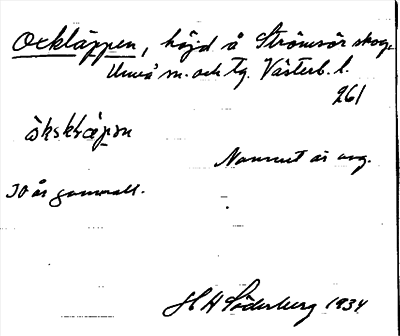 Ockläppen, höjd å Strömsör skog.
Umeå sn. och tg. Västerb. l.
261
ökskläpən
Namnet är ung.
30 år gammalt.
H H Söderberg 1934